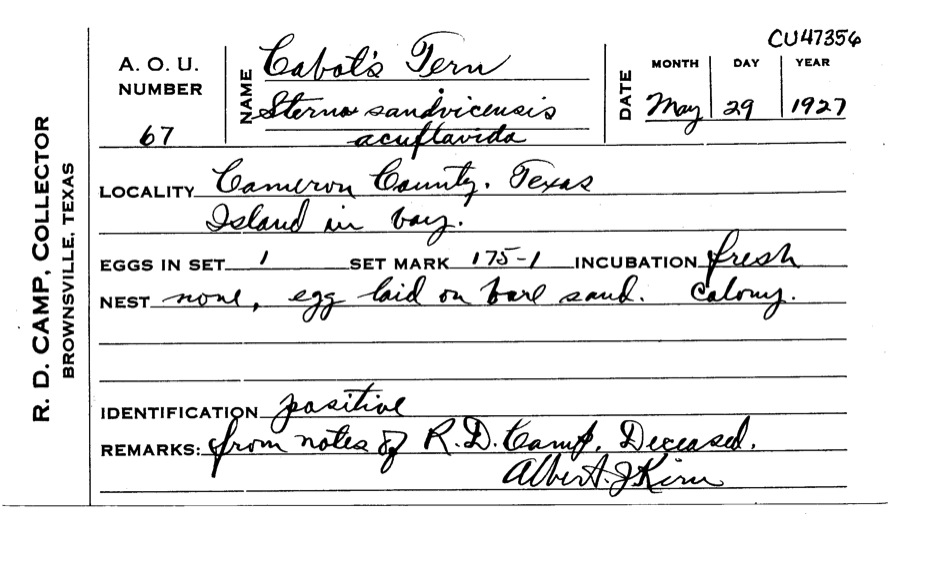 CU47356
A. O. U. NUMBER 67
NAME Cabot's Tern
Sterna sandvicensis
acuflavida
DATE MONTH May DAY 29 YEAR 1927
R. D. CAMP, COLLECTOR
BROWNSVILLE, TEXAS
LOCALITY Cameron County. Texas
Island in bay.
EGGS IN SET 1 SET MARK 175-1 INCUBATION fresh
NEST none, egg laid on bare sand. Colony.
IDENTIFICATION positive
REMARKS: from notes of R.D. Camp. Deceased.
Albert. J Kirn